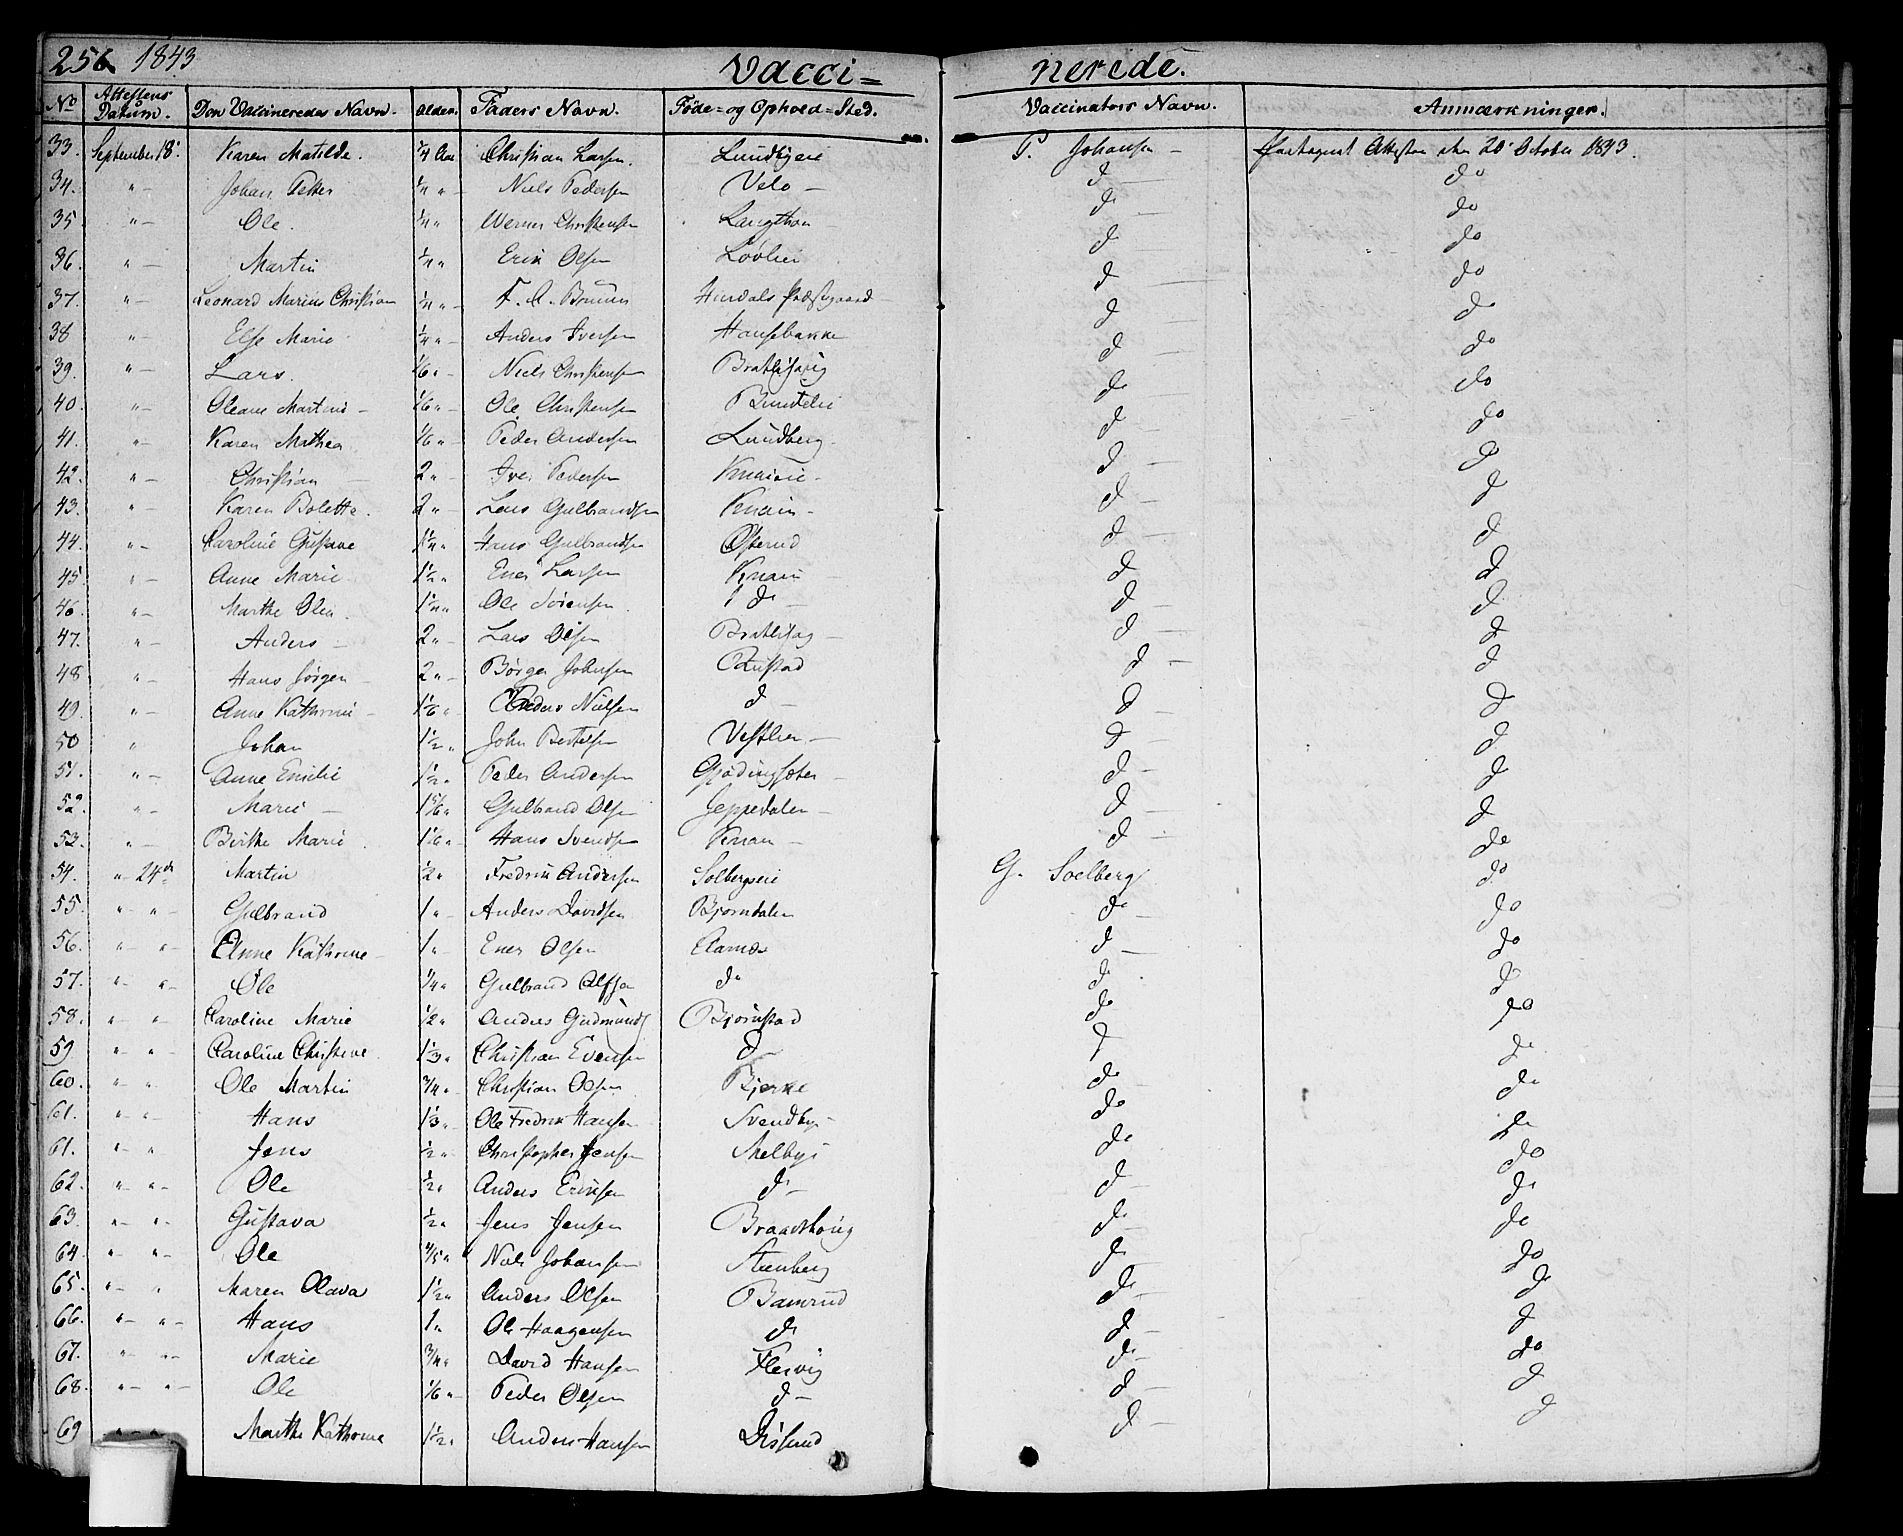 256 1843 Vacci= nerede.
No Attestens Datum. Den Vaccineredes Navn. Alder. Faders Navn. Føde=og Ophold=Sted. Vaccinators Navn. Anmærkninger.
33. September 18. Karen Matilde. 1/4 Aar Christian Larsen. Lundbyeie P. Johansen — Attesten den 20 October 1843.
34. " — Johan Petter 1/4 " Niels Pedersen Velo — d — do
35 " — Ole. 1/4 " Werner Christensen Langthon d — do
36. " — Martin 1/4 " Erik Olsen Løvlien d — do
37. " — Leonard Marius Christian 1/4 " F. A. Bruun Hurdals Præstegaard d — do
38 " — Else Marie 1/4 " Anders Iversen Hansebakken d — do
39. " — Lars. 1/6 " Niels Christensen d — do
40. " — Oleane Martine — 1/6 " Ole Christensen d — do
41. " — Karen Mathea 1/6 " Peder Andersen Lundberg. d — do
42. " — Christian 2 " Iver Pedersen Knaieie — d — do
43. " — Karen Bolette. 2 " Lars Gulbrandsen Knain — d — d
44. " — Caroline Gustave 1 1/4 " Hans Gulbrandsen Østerud d — d
45. " — Anne Marie 1 1/2 " Ener Larsen Knain d d
46. " — Marthe Olea. 1 1/4 " Ole Sørensen. do — d — d
47. " — Anders — 2 " Lars Olsen — d — d
48 " — Hans Jørgen — 2 " Børger Johnsen Rustad d — d
49. " — Anne Kathrine — 1 1/6 " Peder Nielsen d — d — d
50 " Johan 1 1/2 " John Bertelsen Vestlien — d — d
51. " — Anne Emilie 1 1/2 " Peder Andersen Gjødingsæter — d — d
52. " — Marie — 1 5/6 " Gulbrand Olsen Jeppedalen — d — d
53. " — Birthe Marie 1 1/6 " Hans Svendsen Knain — d — do
54. " 24de Martin 1/2 " Fredrik Andersen Solbergseie G. Soelberg do
55. " " — Gulbrand 1 " — Anders Davidsen Bjørndalen do — do
56. " " — Anne Kathrine — 1 " Ener Olsen Aamos d — do
57. " " — Ole 1/4 " Gulbrand Olssen do d d
58. " — " Caroline Marie 1/2 " Anders Gudmunds Bjørnstad do do
59 " " Caroline Christine 1 1/3 " Christian Evensen d d do
60. " " Ole Martin 3/4 " Christian Olsen Bjerke do do
61. " " — Hans 1 1/3 " Ole Fredrik Hansen Svendby — do do
61. " " Jens 1/2 " Christopher Jensen Melbye do do
62. " " — Ole 1/2 " Anders Eriksen do — d — do
63. " — " — Gustava 1/2 " Jens Jensen do — do
64. " — " — Ole 4/5 " Niels Johansen Steenberg d — do
65. " — " Maren Olava 1 1/2 " Anders Olsen Bamrud do — d
66. " — " — Hans 1 " Ole Haagensen do d — d
67. " — " — Marie 3/4 " David Hansen Flesvig do — do
68. " — " — Ole 1/6 " Peder Olsen d — d — d
69 " — " — Marthe Kathrine 1 1/2 " Anders Hansen Disserud d — d